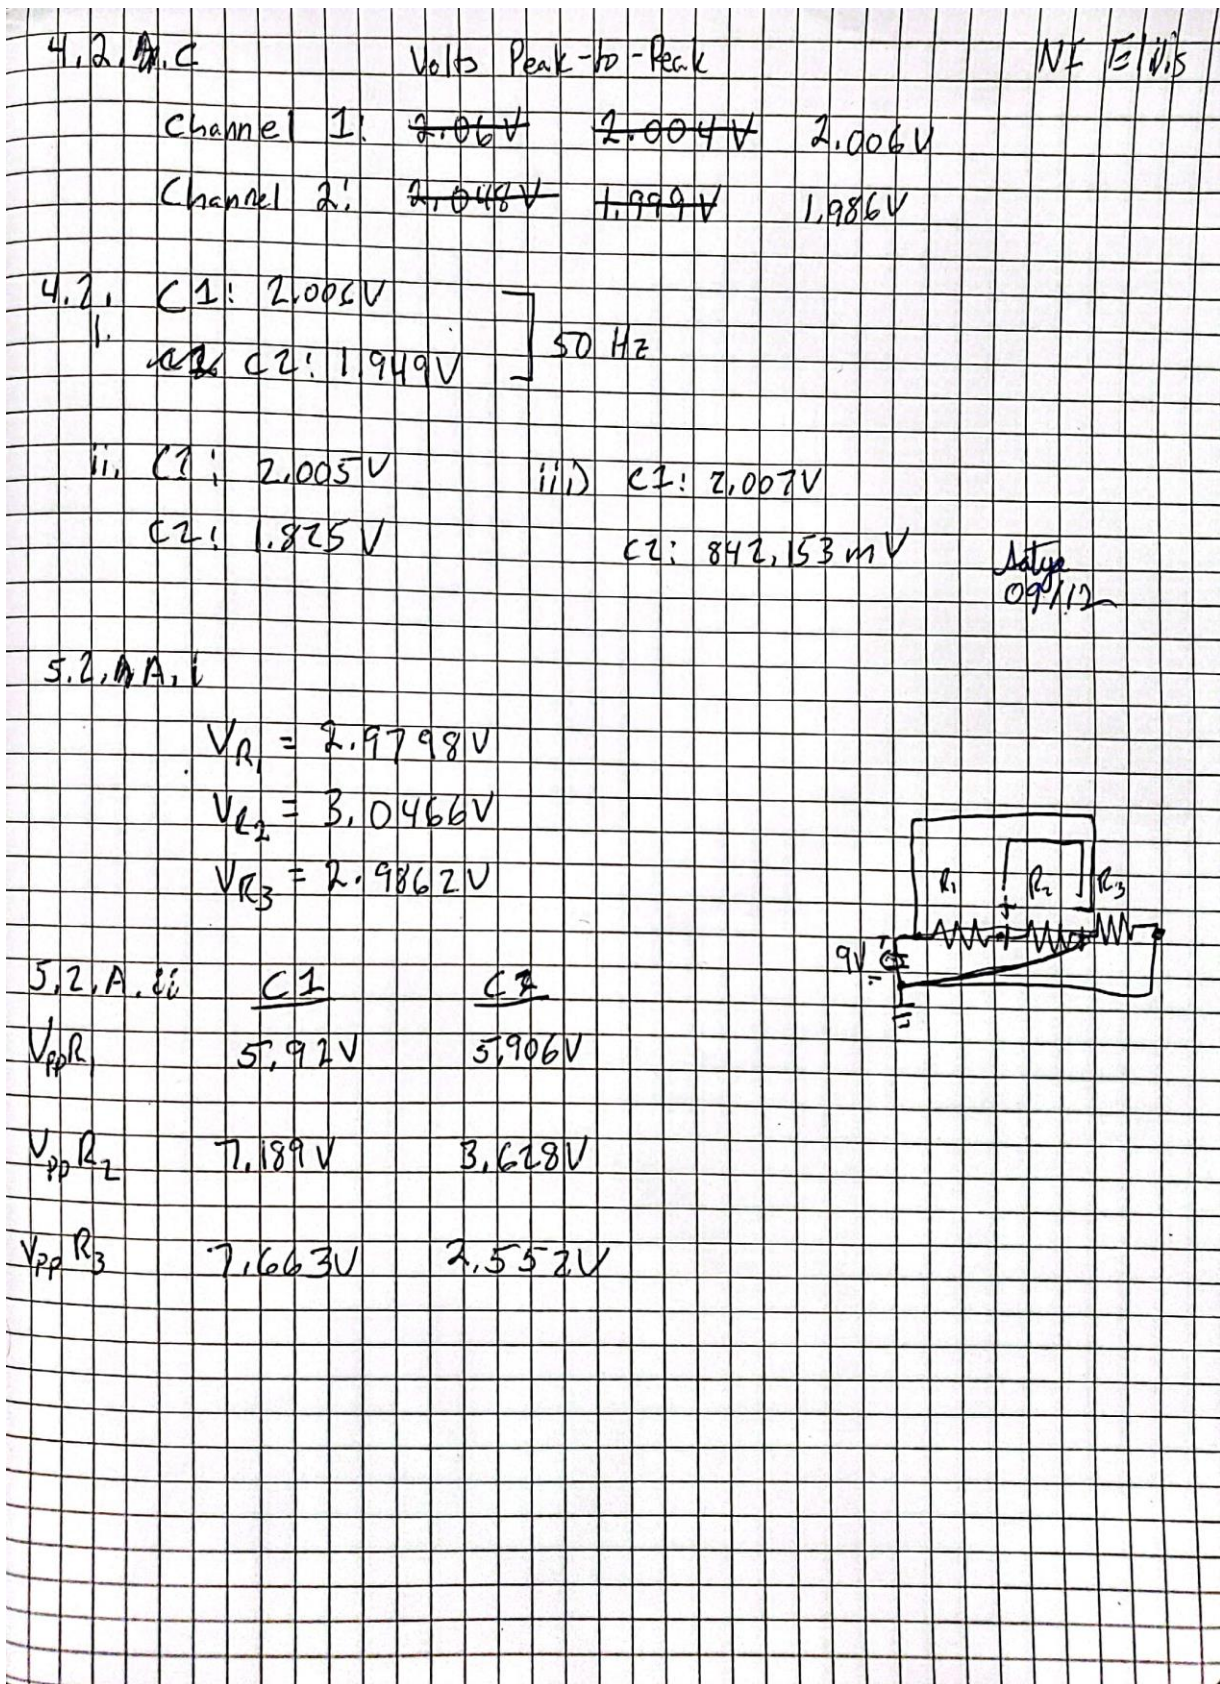 4.2.A.C Volts Peak-to-Peak NI Elvis
Channel 1: 2.06V 2.004V 2.006V
Channel 2: 2.048V 1.999V 1.986V
4.2. C1: 2.006V
i. C2: 1.949V 50 Hz
ii. C1: 2.005V iii) C1: 2.007V
C2: 1.825V C2: 842.153mV
Satya
09/12
5.2.A.i
VR1 = 2.9798V
VR2 = 3.0466V
VR3 = 2.9862V
R1 R2 R3
9V
5.2.A.ii C1 C2
VppR1 5.92V 5.906V
VppR2 7.189V 3.628V
VppR3 7.663V 2.552V